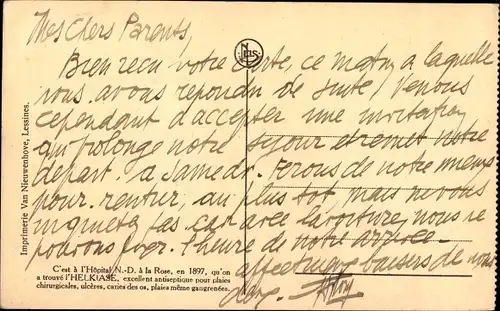 Mes Chers Parents,
Bien reçu votre carte, ce matin à laquelle
vous avons repondu de suite. Venons
cependant d'accepter une invitation
qui prolonge notre séjour et remet notre
départ à samedi. Ferons de notre mieux
pour rentrer, au plus tot, mais ne vous
inquietez pas car avec la voiture, nous ne
pouvons fixer l'heure de notre arrivée.
affectueux baisers de nous
deux.
NELS
Imprimerie Van Nieuwenhove, Lessines.
C'est à l'Hôpital N.-D. à la Rose, en 1897, qu'on
a trouvé l'HELKIASE, excellent antiseptique pour plaies
chirurgicales, ulcères, caries des os, plaies même gangrenées.